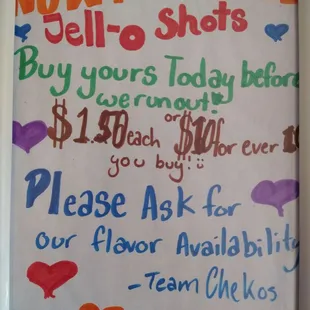 Jell-o Shots
Buy yours Today before
we run out!
$1.50 each or $10 for ever 10
you buy!
Please Ask for
our flavor Availability
-Team Chekos